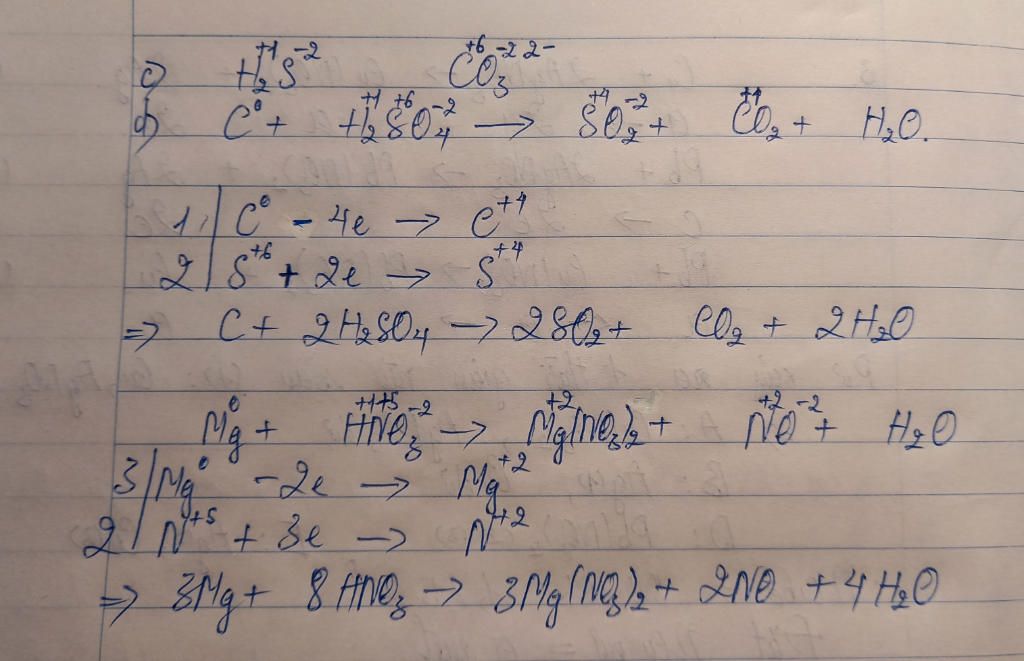 c) H₂⁺¹S⁻² C⁺⁶O₃⁻² ²⁻
d) C⁰ + H₂⁺¹S⁺⁶O₄⁻² → S⁺⁴O₂⁻² + C⁺⁴O₂ + H₂O.
1 | C⁰ - 4e → C⁺⁴
2 | S⁺⁶ + 2e → S⁺⁴
=> C + 2H₂SO₄ → 2SO₂ + CO₂ + 2H₂O
Mg⁰ + H⁺¹N⁺⁵O₃⁻² → Mg⁺²(NO₃)₂ + N⁺²O⁻² + H₂O
3 | Mg⁰ - 2e → Mg⁺²
2 | N⁺⁵ + 3e → N⁺²
=> 3Mg + 8HNO₃ → 3Mg(NO₃)₂ + 2NO + 4H₂O